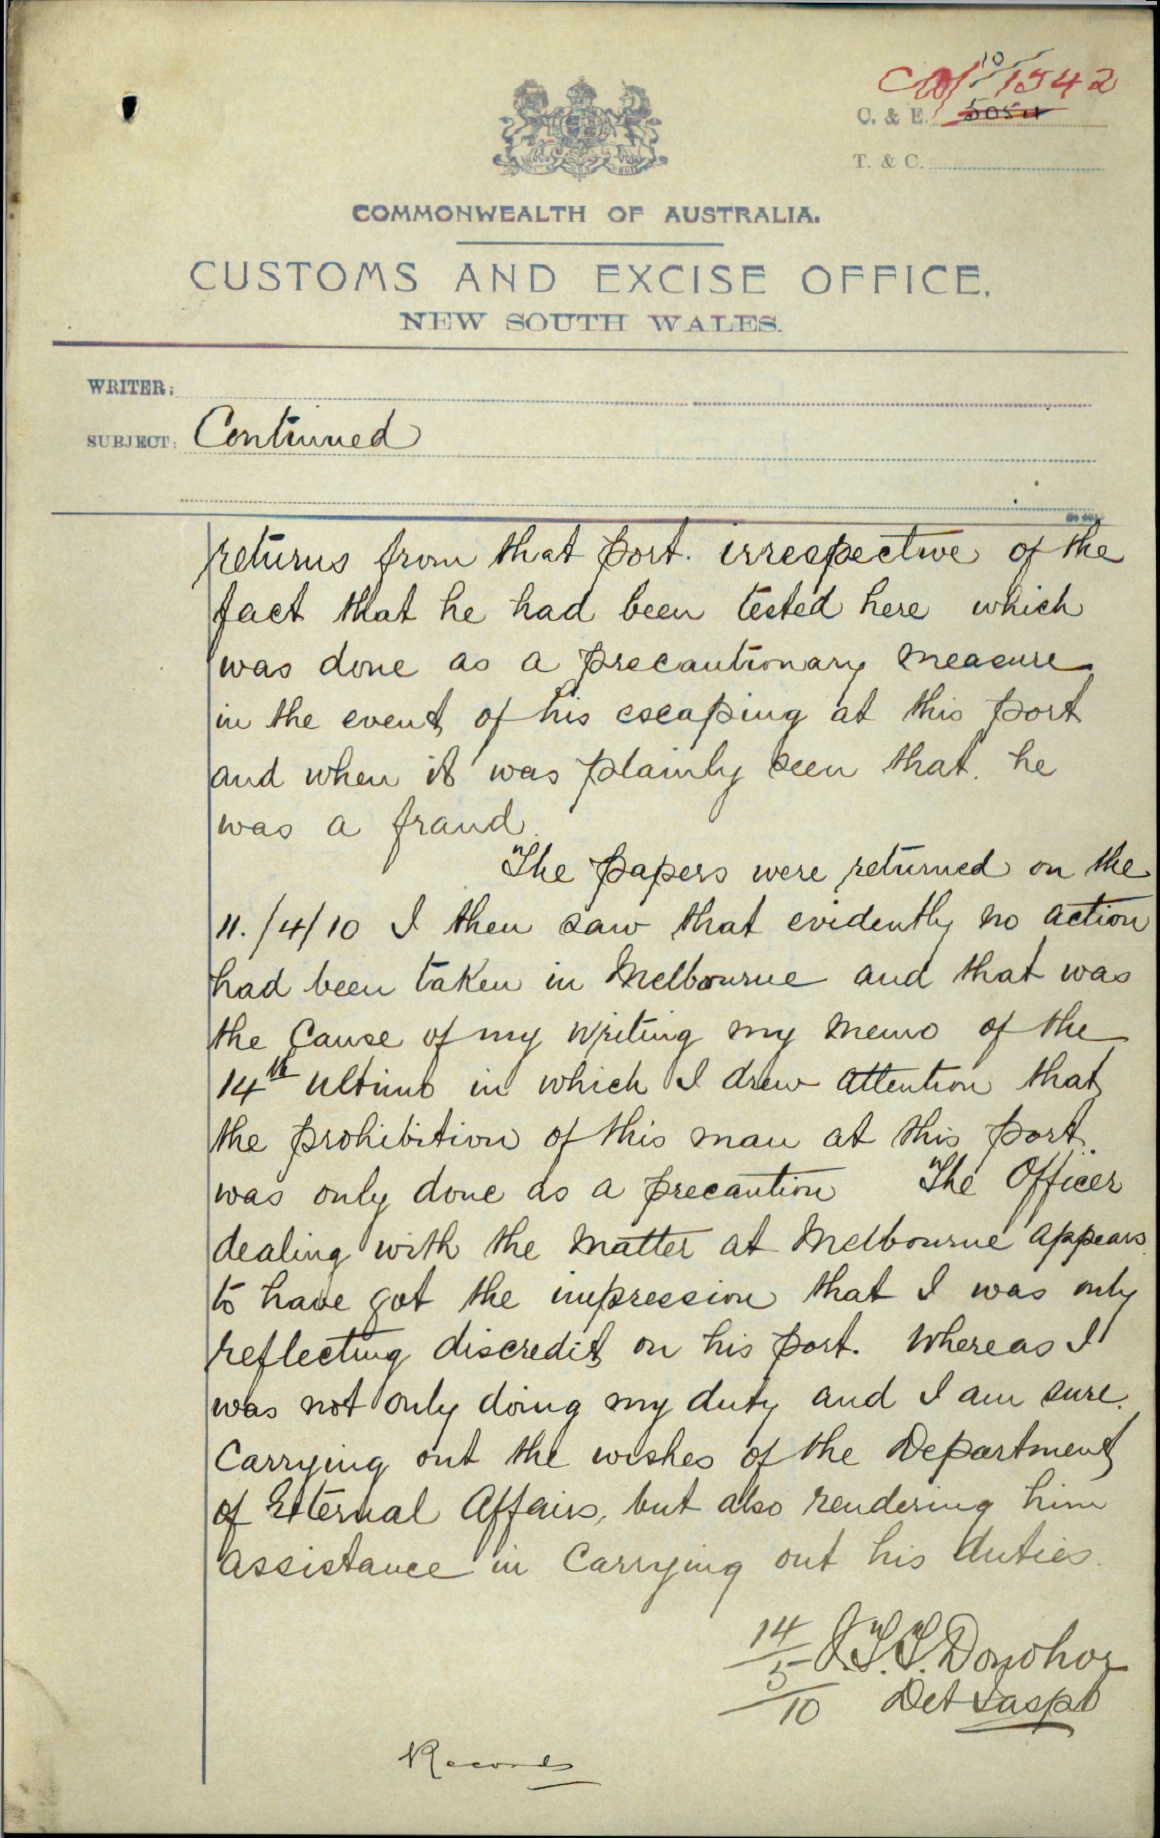 10/1542
C. & E. 5054
T. & C.
COMMONWEALTH OF AUSTRALIA.
CUSTOMS AND EXCISE OFFICE.
NEW SOUTH WALES.
WRITER:
SUBJECT: Continued
returns from that port. irrespective of the
fact that he had been tested here which
was done as a precautionary measure
in the event of his escaping at this port
and when it was plainly seen that he
was a fraud.
The papers were returned on the
11./4/10 I then saw that evidently no action
had been taken in Melbourne and that was
the Cause of my writing my memo of the
14th ultimo in which I drew attention that
the prohibition of this man at this port.
was only done as a precaution The Officer
dealing with the matter at Melbourne appears
to have got the impression that I was only
reflecting discredit on his port. Whereas I
was not only doing my duty and I am sure.
Carrying out the wishes of the Department
of External Affairs, but also rendering him
assistance in Carrying out his duties.
14/5/10 J.T.T. Donohoe
Det Inspr
Records